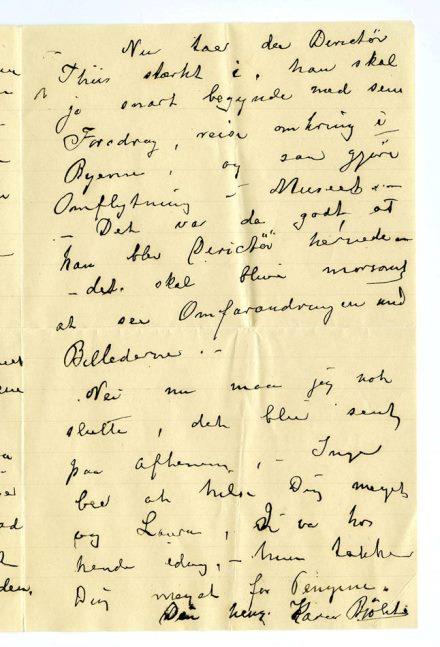 – Nu tar da Director
Thiis stærkt i, han skal
jo snart begynde med sene
Foredrag, reise omkring i
Byerne, og saa gjøre
Omflytning – Museet. –
– Det var da godt, at
han blev Director hernede –
– det skal blive morsomt
at see Omforandringen med
Billederne. –
Nei nu maa jeg nok
slutte, det blir sent
paa Aftenen, – Inger
ber at hilse Dig meget
og Laura, Vi va hos
hende idag, – hun takker
Dig meget for Pengene.
Din heng. Karen Bjølstad